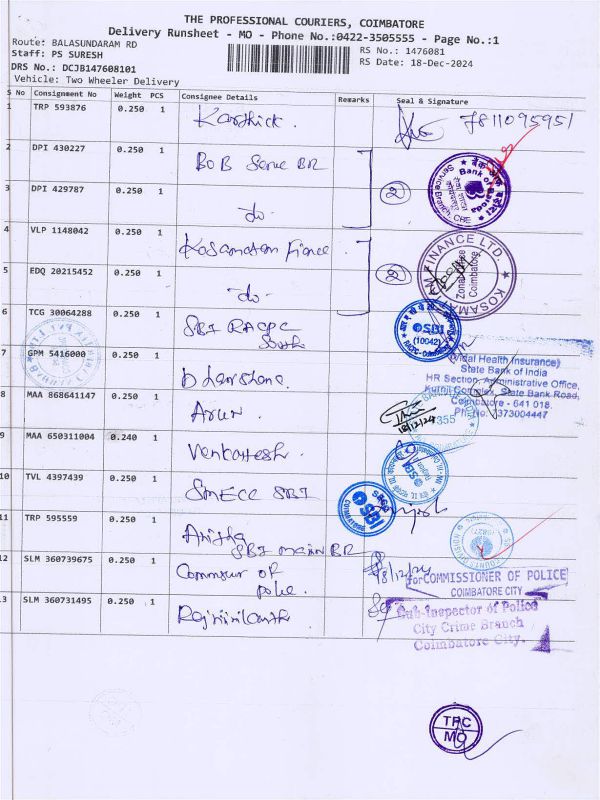 THE PROFESSIONAL COURIERS, COIMBATORE
Delivery Runsheet - MO - Phone No.:0422-3505555 - Page No.:1
Route: BALASUNDARAM RD
Staff: PS SURESH
DRS No.: DCJB147608101
Vehicle: Two Wheeler Delivery
RS No.: 1476081
RS Date: 18-Dec-2024
S No Consignment No Weight PCS Consignee Details Remarks Seal & Signature
1 TRP 593876 0.250 1 Karthick. 7811095951
2 DPI 430227 0.250 1 BOB Serve BR
3 DPI 429787 0.250 1 -do- 2
Bank of Baroda
Service Branch
CBE
4 VLP 1148042 0.250 1 Kosamatam Finance
5 EDQ 20215452 0.250 1 -do- 2
KOSAMATTAM FINANCE LTD.
Zonal Office
Coimbatore
6 TCG 30064288 0.250 1 SBI RACPC
South
SBI
(10042)
7 GPM 5416000 0.250 1 Dharshana.
(Vidal Health Insurance)
State Bank of India
HR Section, Administrative Office,
State Bank Road,
Coimbatore - 641 018.
Ph.No. 7373004447
8 MAA 868641147 0.250 1 Arun.
18/12/24
355
9 MAA 650311004 0.240 1 Venkattesh.
10 TVL 4397439 0.250 1 SMECC SBI
SBI
11 TRP 595559 0.250 1 Anitha
SBI main BR
12 SLM 360739675 0.250 1 Commsur of
police.
18/12/24
for COMMISSIONER OF POLICE
COIMBATORE CITY
13 SLM 360731495 0.250 1
Sub-Inspector of Police
City Crime Branch
Coimbatore City.
TPC
MO